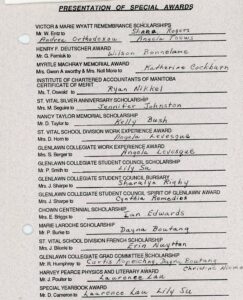 PRESENTATION OF SPECIAL AWARDS
VICTOR & MARIE WYATT REMEMBRANCE SCHOLARSHIPS
Mr. W. Enns to Shara Rogers
Andrea Orthodoxou Angela Touws
HENRY F. DEUTSCHER AWARD
Mr. G. Fornisk to Wilson Bonnelame
MYRTLE MACHRAY MEMORIAL AWARD
Mrs. Gwen A'worthy & Mrs. Nell Moro to Katherine Cockburn
INSTITUTE OF CHARTERED ACCOUNTANTS OF MANITOBA
CERTIFICATE OF MERIT
Ms. T. Cowell to Ryan Nikkel
ST. VITAL SILVER ANNIVERSARY SCHOLARSHIP
Ms. M. Seguire to Jennifer Johnston
NANCY TAYLOR MEMORIAL SCHOLARSHIP
Mr. D. Taylor to Kelly Bush
ST. VITAL SCHOOL DIVISION WORK EXPERIENCE AWARD
Mrs. D. Horn to Angela Levesque
GLENLAWN COLLEGIATE WORK EXPERIENCE AWARD
Mrs. S. Berger to Angela Levesque
GLENLAWN COLLEGIATE STUDENT COUNCIL SCHOLARSHIP
Mr. P. Smith to Lily Su
GLENLAWN COLLEGIATE STUDENT COUNCIL BURSARY
Mrs. J. Sharpe to Sharalyn Rigby
GLENLAWN COLLEGIATE STUDENT COUNCIL SPIRIT OF GLENLAWN AWARD
Mrs. J. Sharpe to Cynthia Remedios
CHOWN CENTENNIAL SCHOLARSHIP
Mrs. E. Briggs to Ian Edwards
MARIE LAROCHE SCHOLARSHIP
Mr. P. Burke to Dayna Boutang
ST. VITAL SCHOOL DIVISION FRENCH SCHOLARSHIP
Mrs. J. Marlin to Erin Nuytten
GLENLAWN COLLEGIATE GRAD COMMITTEE SCHOLARSHIP
Mr. R. Humphrey to Curtis Dayna Boutang
Christian
HARVEY PEARCE PHYSICS AND LITERARY AWARD
Mr. J. Paulsor to Laurence Lau
SPECIAL YEARBOOK AWARD
Mr. D. Cameron to Laurence Lau Lily Su